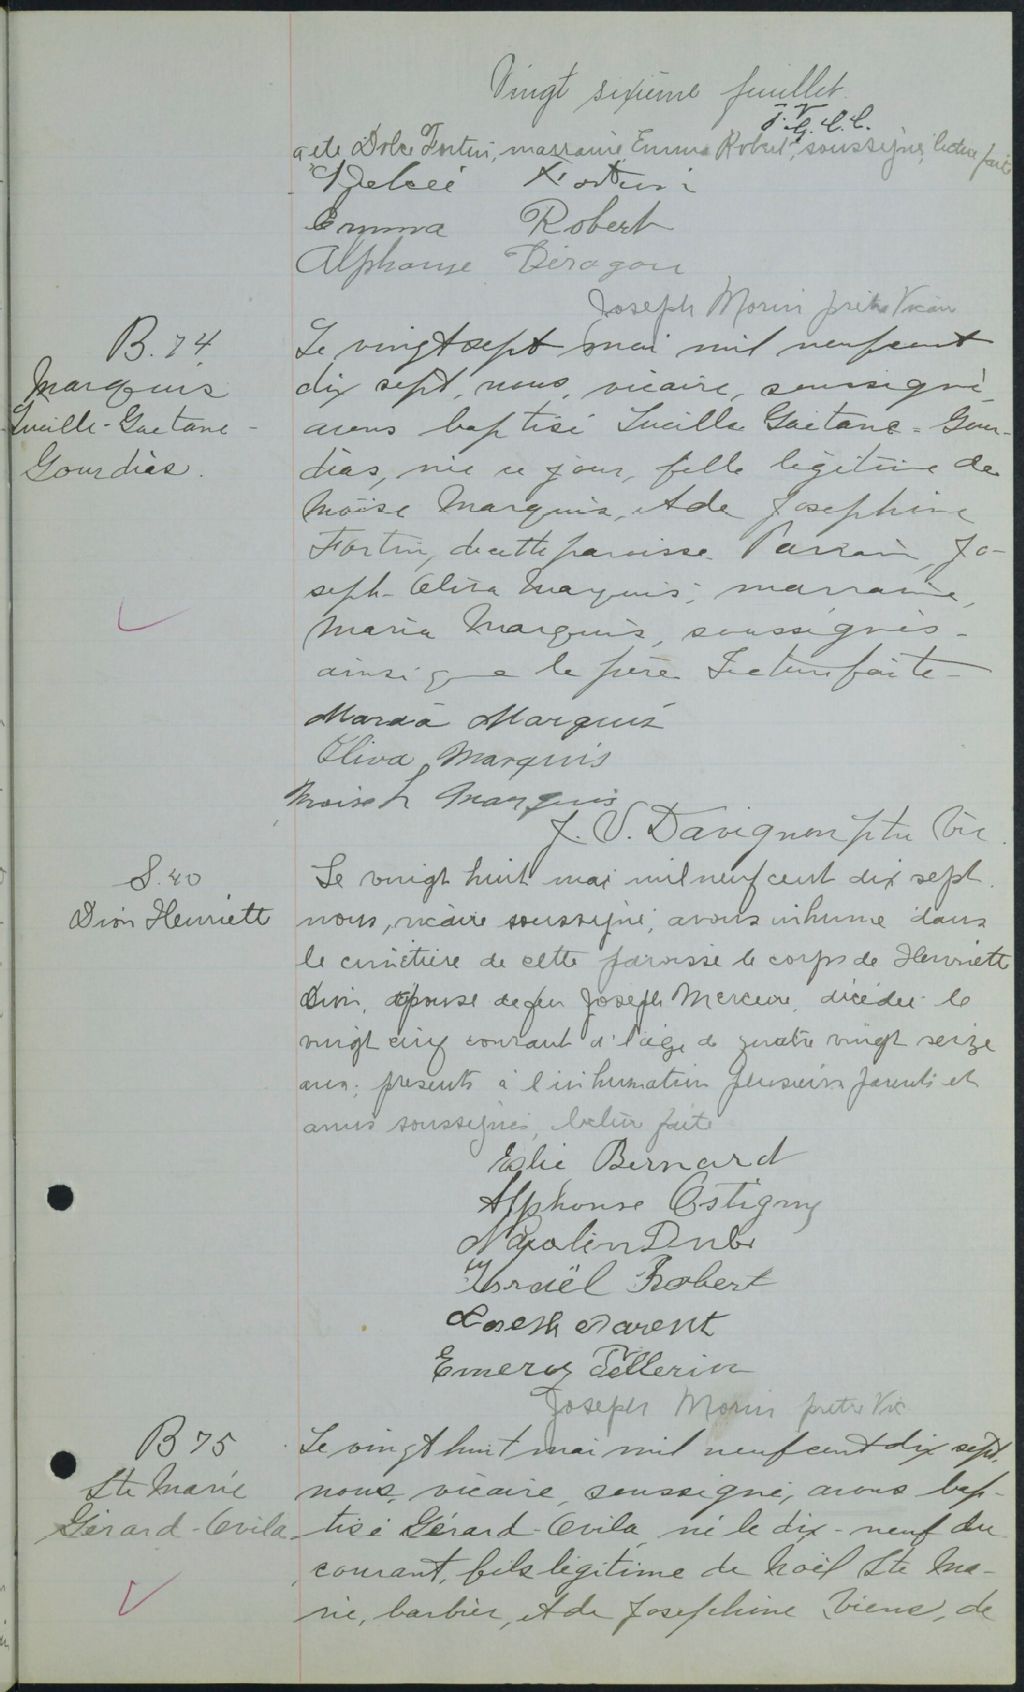 Vingt sixième feuillet.
J. V.
G. C. C.
a été Dolce Fortin, marraine Emma Robert, soussignés, lecture faite
Delcié Fortin
Emma Robert
Alphonse Déragon
Joseph Morin prêtre Vicaire
B. 74
Marquis
Lucille-Gaetane-
Gourdias.
Le vingt sept mai mil neuf cent
dix sept, nous, vicaire, soussigné,
avons baptisé Lucille Gaëtane-Gour-
dias, née ce jour, fille légitime de
Moïse Marquis, et de Joséphine
Fortin, de cette paroisse. Parrain, Jo-
seph-Oliva Marquis; marraine,
Maria Marquis, soussignés
ainsi que le père. Lecture faite
Maria Marquis
Oliva Marquis
Moise Marquis
J. U. Davignon ptre Vic.
S. 40
Dion Henriett
Le vingt huit mai mil neuf cent dix sept.
nous, vicaire soussigné, avons inhumé dans
le cimetière de cette paroisse le corps de Henriett
Dion, épouse de feu Joseph Mercure, décédée le
vingt cinq courant à l'âge de quatre vingt seize
ans; présents à l'inhumation plusieurs parents et
amis soussignés, lecture faite
Eslie Bernard
Alphonse Ostigny
Napoléon Dubé
Israël Robert
Joseph Parent
Emery Tellerin
Joseph Morin prêtre Vic
B 75
Ste Marie
Gérard-Ovila
Le vingt huit mai mil neuf cent dix sept,
nous, vicaire, soussigné, avons bap-
tisé Gérard-Ovila, né le dix-neuf du
courant, fils légitime de Noël Ste Ma-
rie, barbier, et de Joséphine Viens, de